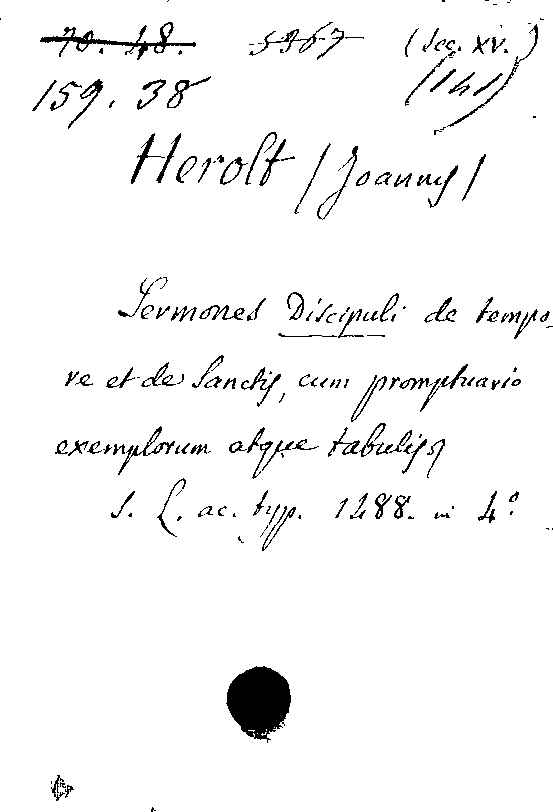 70. 48. 5367 (Sec. XV.)
159. 38 (141)
Herolt (Joannes)
Sermones Discipuli de tempo-
re et de Sanctis, cum promptuario
exemplorum atque tabulis,
s. L. ac. typ. 1488. in 4°